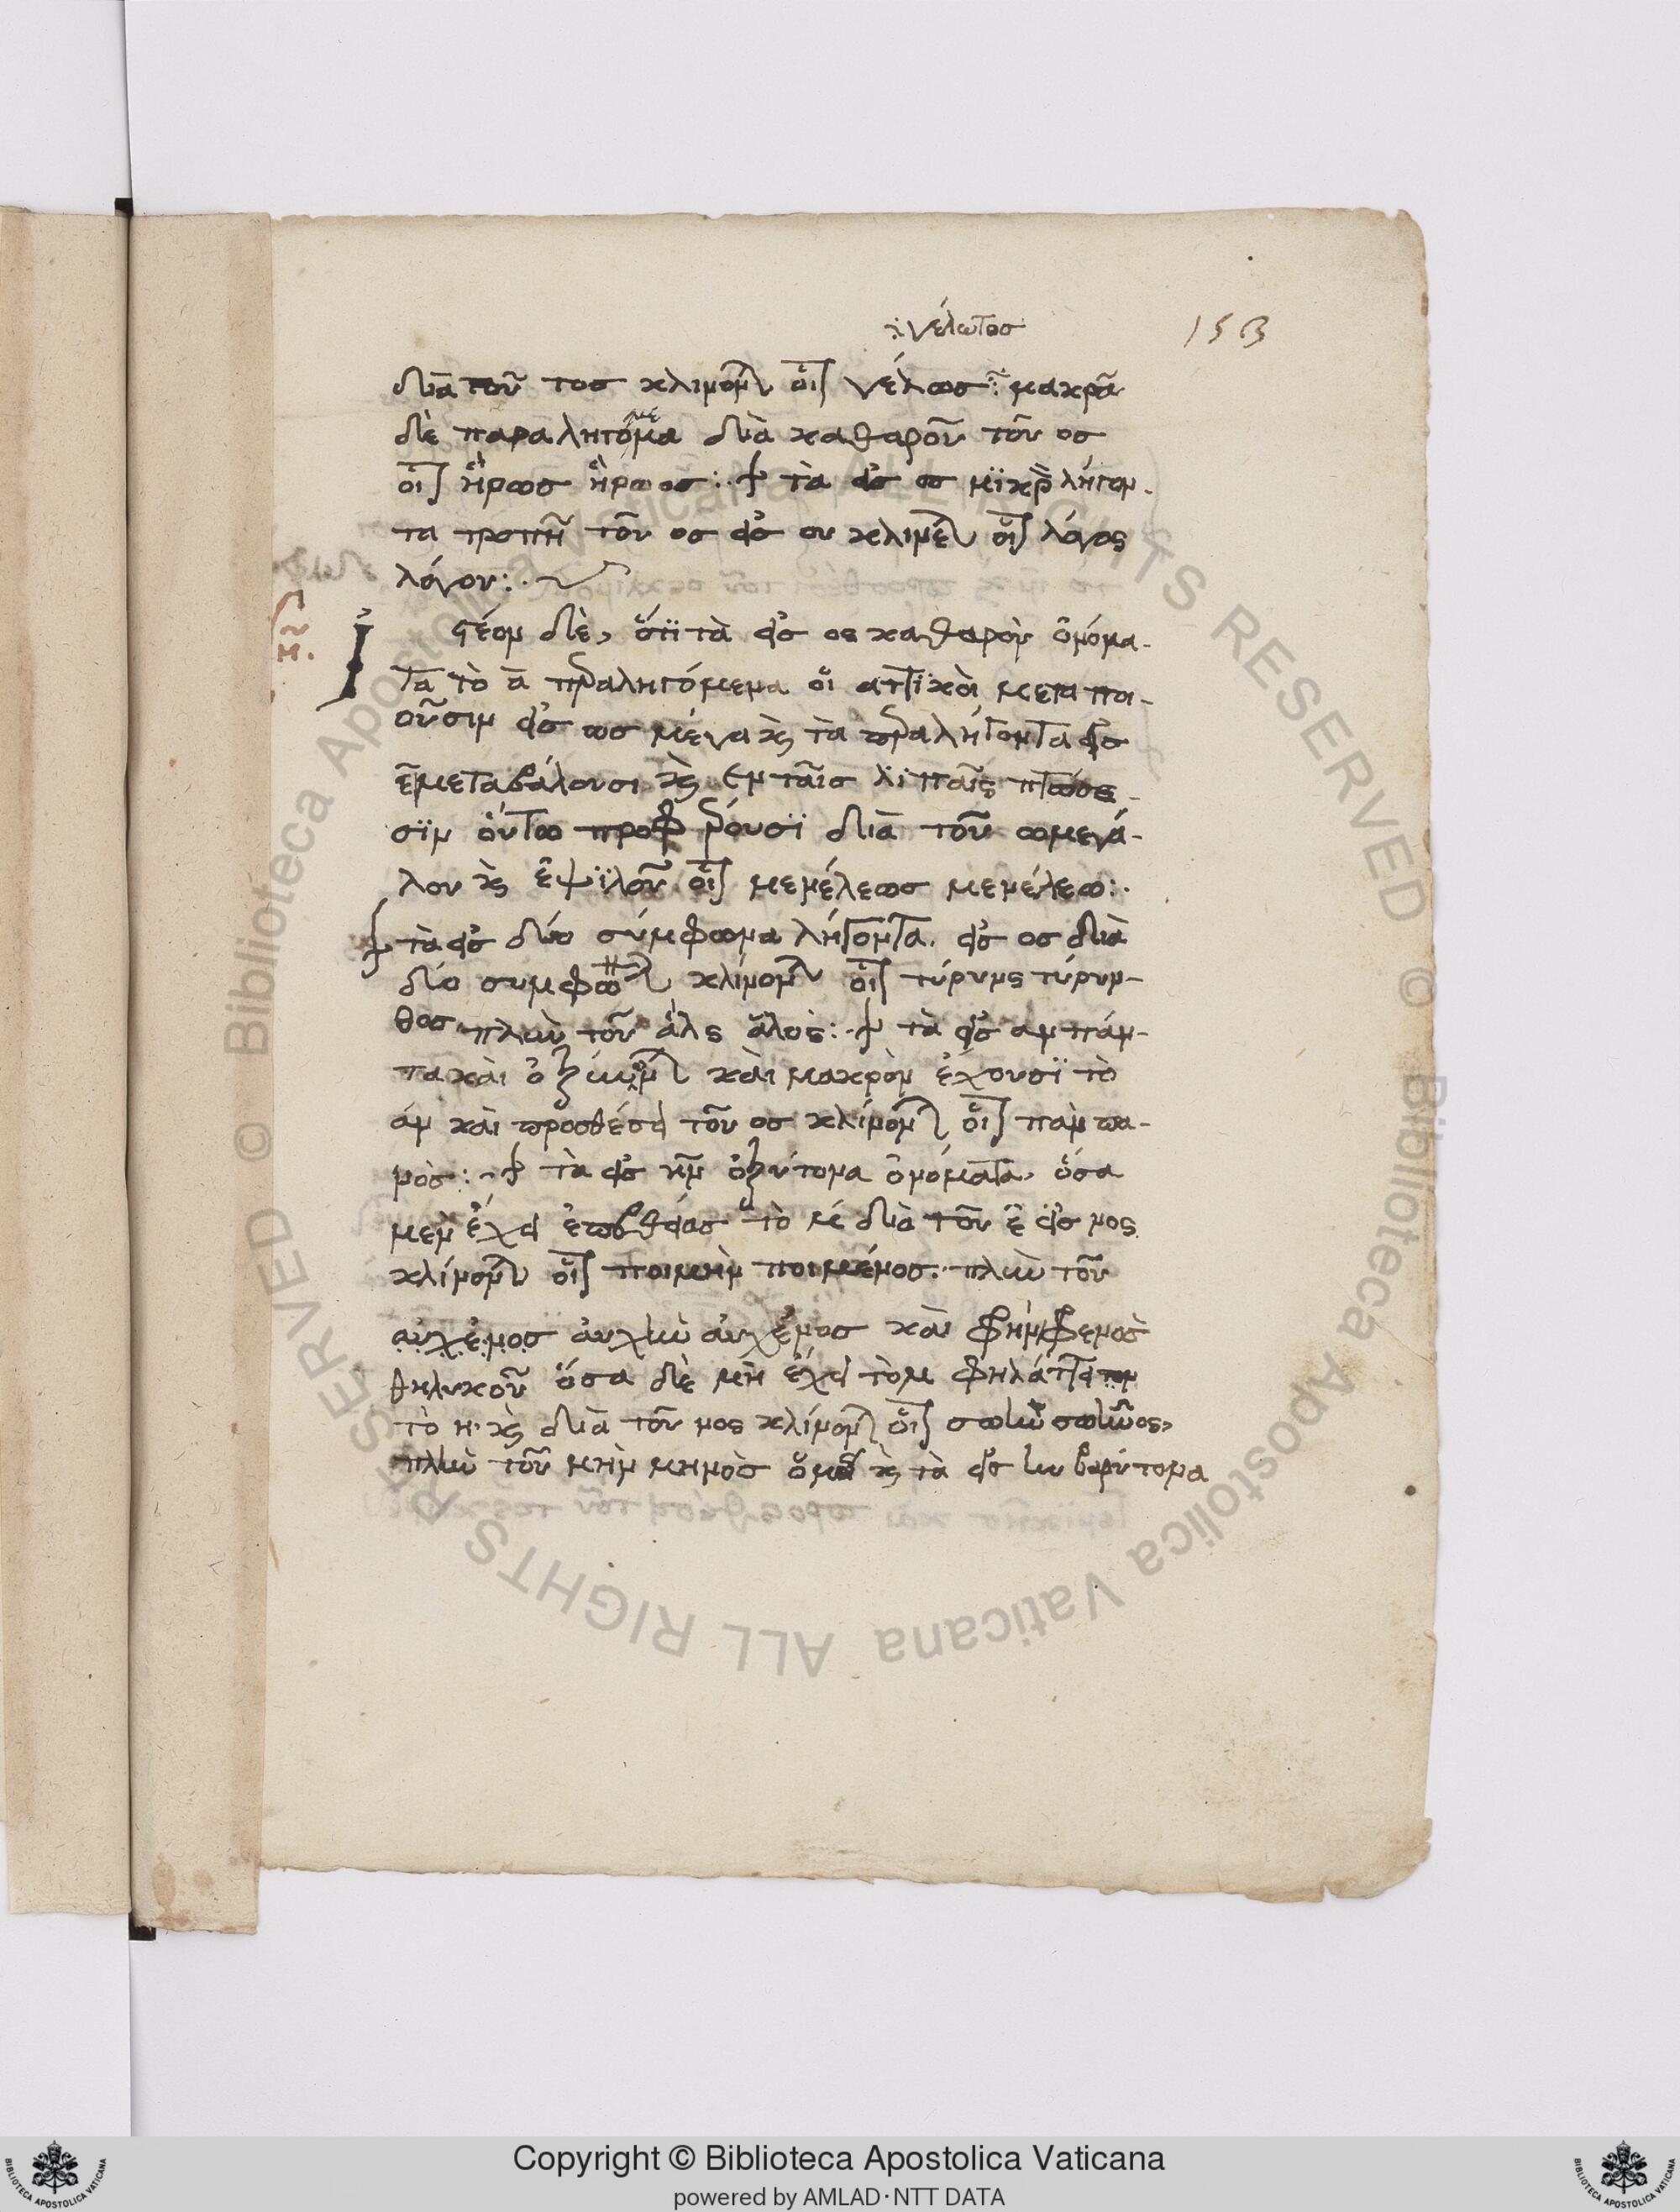 γέλωτος
153
διὰ τοῦ τος κλίνονται οἷον γέλως: μακρᾶ
δὲ παραληγόμενα διὰ καθαροῦ τοῦ ος
οἷον ἥρως ἥρωος: τὰ εἰς ος μικρὸν λήγον-
τα τροπῆ τοῦ ος εἰς ου κλίνεται οἷον λόγος
λόγου:
Ἰστέον δὲ, ὅτι τὰ εἰς ος καθαρὸν ὀνόμα-
τα τὸ ᾱ παραληγόμενα οἱ ἀττικοὶ μεταποι-
οῦσιν εἰς ως μέγα καὶ τὰ παραλήγοντα εἰς
ε̄ μεταβάλουσι καὶ ἐν ταῖς λιπαῖς πτώσε-
σιν οὕτω προφέρουσι διὰ τοῦ ωμεγά-
λου καὶ ἐψιλοῦ οἷον μενέλεως μενέλεω:
τὰ εἰς δύο σύμφωνα λήγοντα εἰς ος διὰ
δύο συμφώνων κλίνονται οἷον τύρυνς τύρυν-
θος πλὴν τοῦ ἅλς ἁλός: τὰ εἰς αν πάν-
τα καὶ ὀξύνονται καὶ μακρὸν ἔχουσι τὸ
άν καὶ προσθέσει τοῦ ος κλίνονται οἷον πὰν πα-
νός: τὰ εἰς ην ὀξύτονα ὀνόματα, ὅσα
μεν ἔχει τὸ μ διὰ τοῦ ε εἰς νος
κλίνονται οἷον ποιμὴν ποιμένος. πλὴν τοῦ
αὐχένος αὐχὴν αὐχένος καὶ φρὴν φρενὸς
θηλυκοῦ ὅσα δὲ μὴ ἔχει τὸ μ φηλάττει
τὸ η καὶ διὰ τοῦ νος κλίνονται οἷον σωλὴν σωλῆνος,
πλὴν τοῦ μὴν μηνὸς καὶ τὰ εἰς ην βαρύτονα